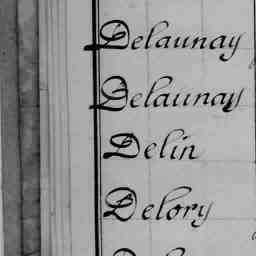 Delaunay
Delaunay
Delin
Delory